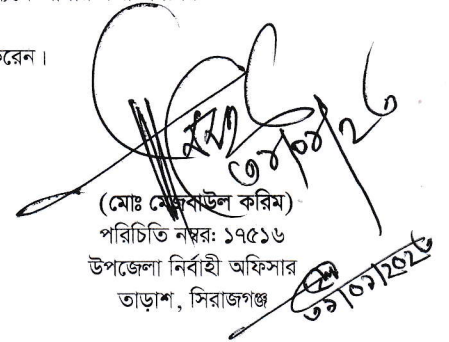 করেন।
৩১/০১/২৬
(মোঃ মেজবাউল করিম)
পরিচিতি নম্বর: ১৭৫১৬
উপজেলা নির্বাহী অফিসার
তাড়াশ, সিরাজগঞ্জ
৩১/০১/২০২৬